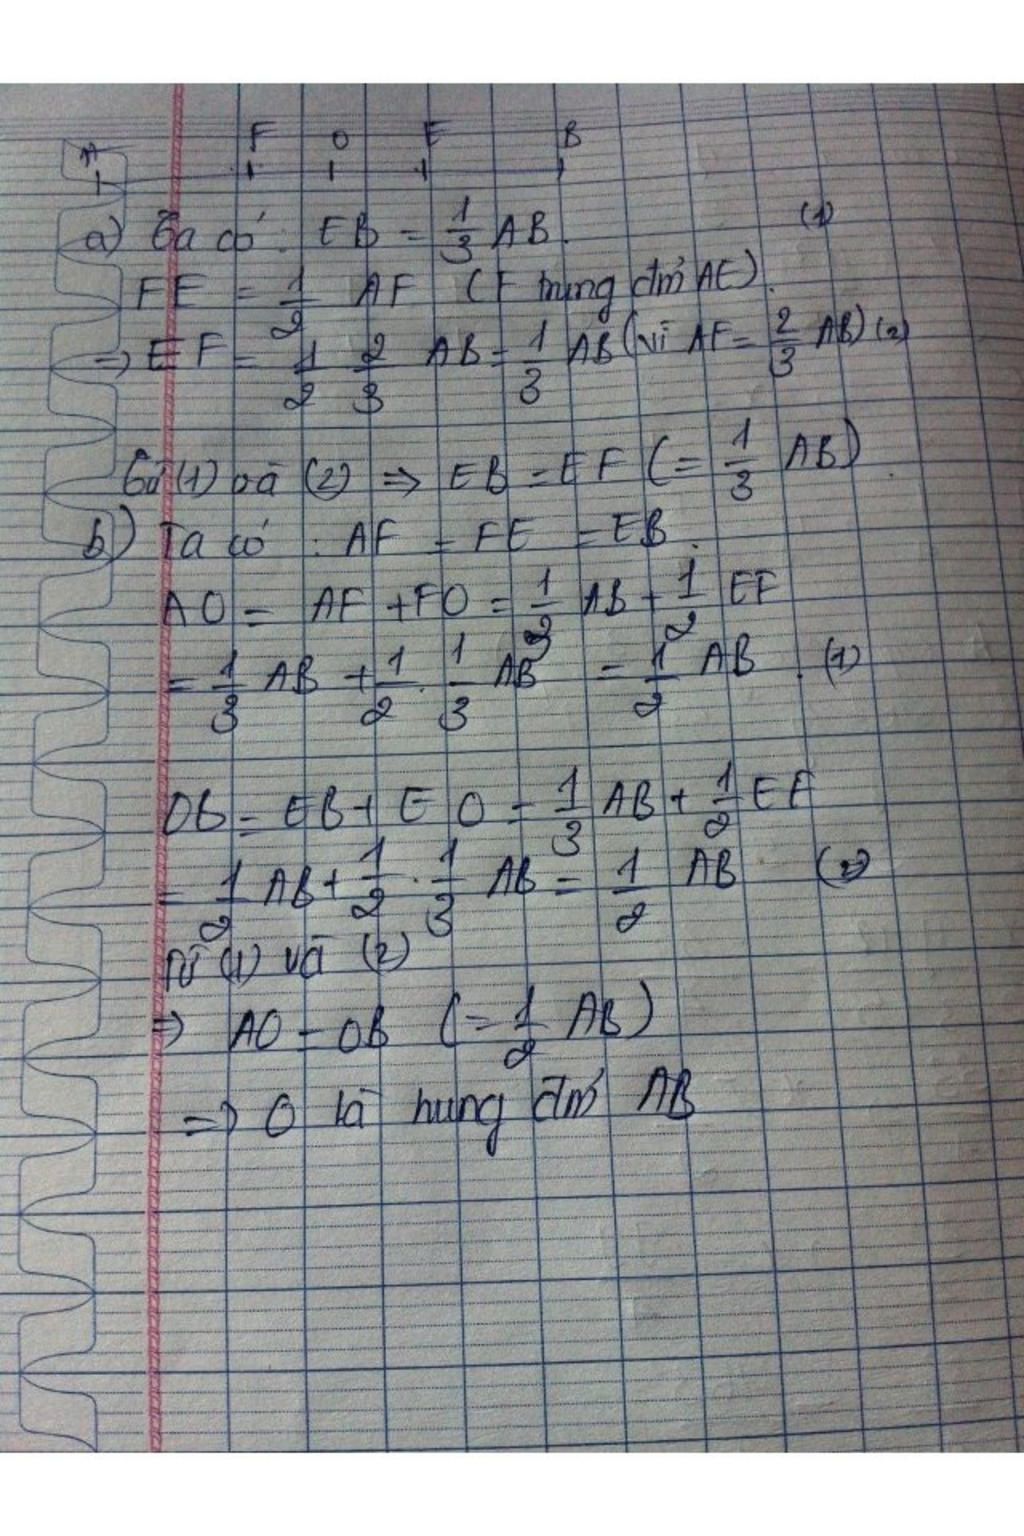 A F O E B
a) Ta có: EB = 1/3 AB. (1)
FE = 1/2 AE (F trung điểm AE).
=> EF = 1/2 2/3 AB = 1/3 AB (vì AE = 2/3 AB) (2)
Từ (1) và (2) => EB = EF (= 1/3 AB)
b) Ta có: AF = FE = EB.
AO = AF + FO = 1/3 AB + 1/2 EF
= 1/3 AB + 1/2 . 1/3 AB = 1/2 AB. (1)
OB = EB + EO = 1/3 AB + 1/2 EF
= 1/2 AB + 1/2 . 1/3 AB = 1/2 AB (2)
Từ (1) và (2)
=> AO = OB (= 1/2 AB)
=> O là trung điểm AB